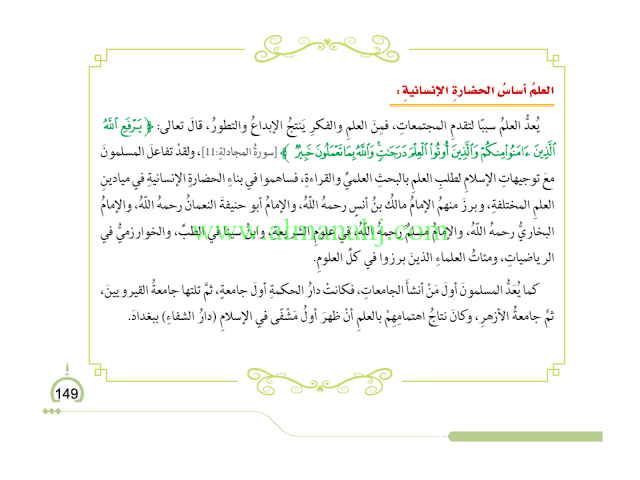 العلمُ أساسُ الحضارةِ الإنسانيةِ:
يُعدُّ العلمُ سببًا لتقدمِ المجتمعاتِ، فمِنَ العلمِ والفكرِ يَنتجُ الإبداعُ والتطورُ، قالَ تعالى: ﴿ يَرْفَعِ ٱللَّهُ
ٱلَّذِينَ ءَامَنُوا۟ مِنكُمْ وَٱلَّذِينَ أُوتُوا۟ ٱلْعِلْمَ دَرَجَـٰتٍ ۚ وَٱللَّهُ بِمَا تَعْمَلُونَ خَبِيرٌ ﴾ [سورةُ المجادلةِ:11]، ولقدْ تفاعلَ المسلمونَ
معَ توجيهاتِ الإسلامِ لطلبِ العلمِ بالبحثِ العلميِّ والقراءةِ، فساهموا في بناءِ الحضارةِ الإنسانيةِ في ميادينِ
العلمِ المختلفةِ، وبرزَ منهمُ الإمامُ مالكُ بنُ أنسٍ رحمهُ اللّهُ، والإمامُ أبو حنيفةَ النعمانُ رحمهُ اللّهُ، والإمامُ
البخاريُّ رحمهُ اللّهُ، والإمامُ مسلمٌ رحمهُ اللّهُ، في علومِ الشريعةِ، وابنُ سينا في الطبِّ، والخوارزميُّ في
الرياضياتِ، ومئاتُ العلماءِ الذينَ برزوا في كلِّ العلومِ.
www.almanahj.com
كما يُعَدُّ المسلمونَ أولَ مَنْ أنشأَ الجامعاتِ، فكانتْ دارُ الحكمةِ أولَ جامعةٍ، ثمَّ تلتها جامعةُ القيرويينَ،
ثمَّ جامعةُ الأزهرِ، وكانَ نتاجُ اهتمامِهِمْ بالعلمِ أنْ ظهرَ أولُ مَشْفًى في الإسلامِ (دارُ الشفاءِ) ببغدادَ.
149